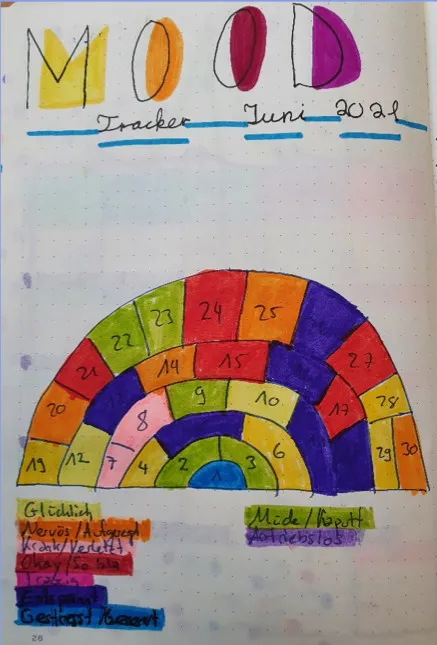 MOOD
Tracker Juni 2021
22 23 24 25
21 14 15 27
20 8 9 10 17 28
19 12 7 4 2 1 3 6 29 30
Glücklich Müde/Kaputt
Nervös/Aufgeregt Antriebslos
Krank/Verletzt
Okay/So lala
Traurig
Entspannt
Gestresst/Genervt
28